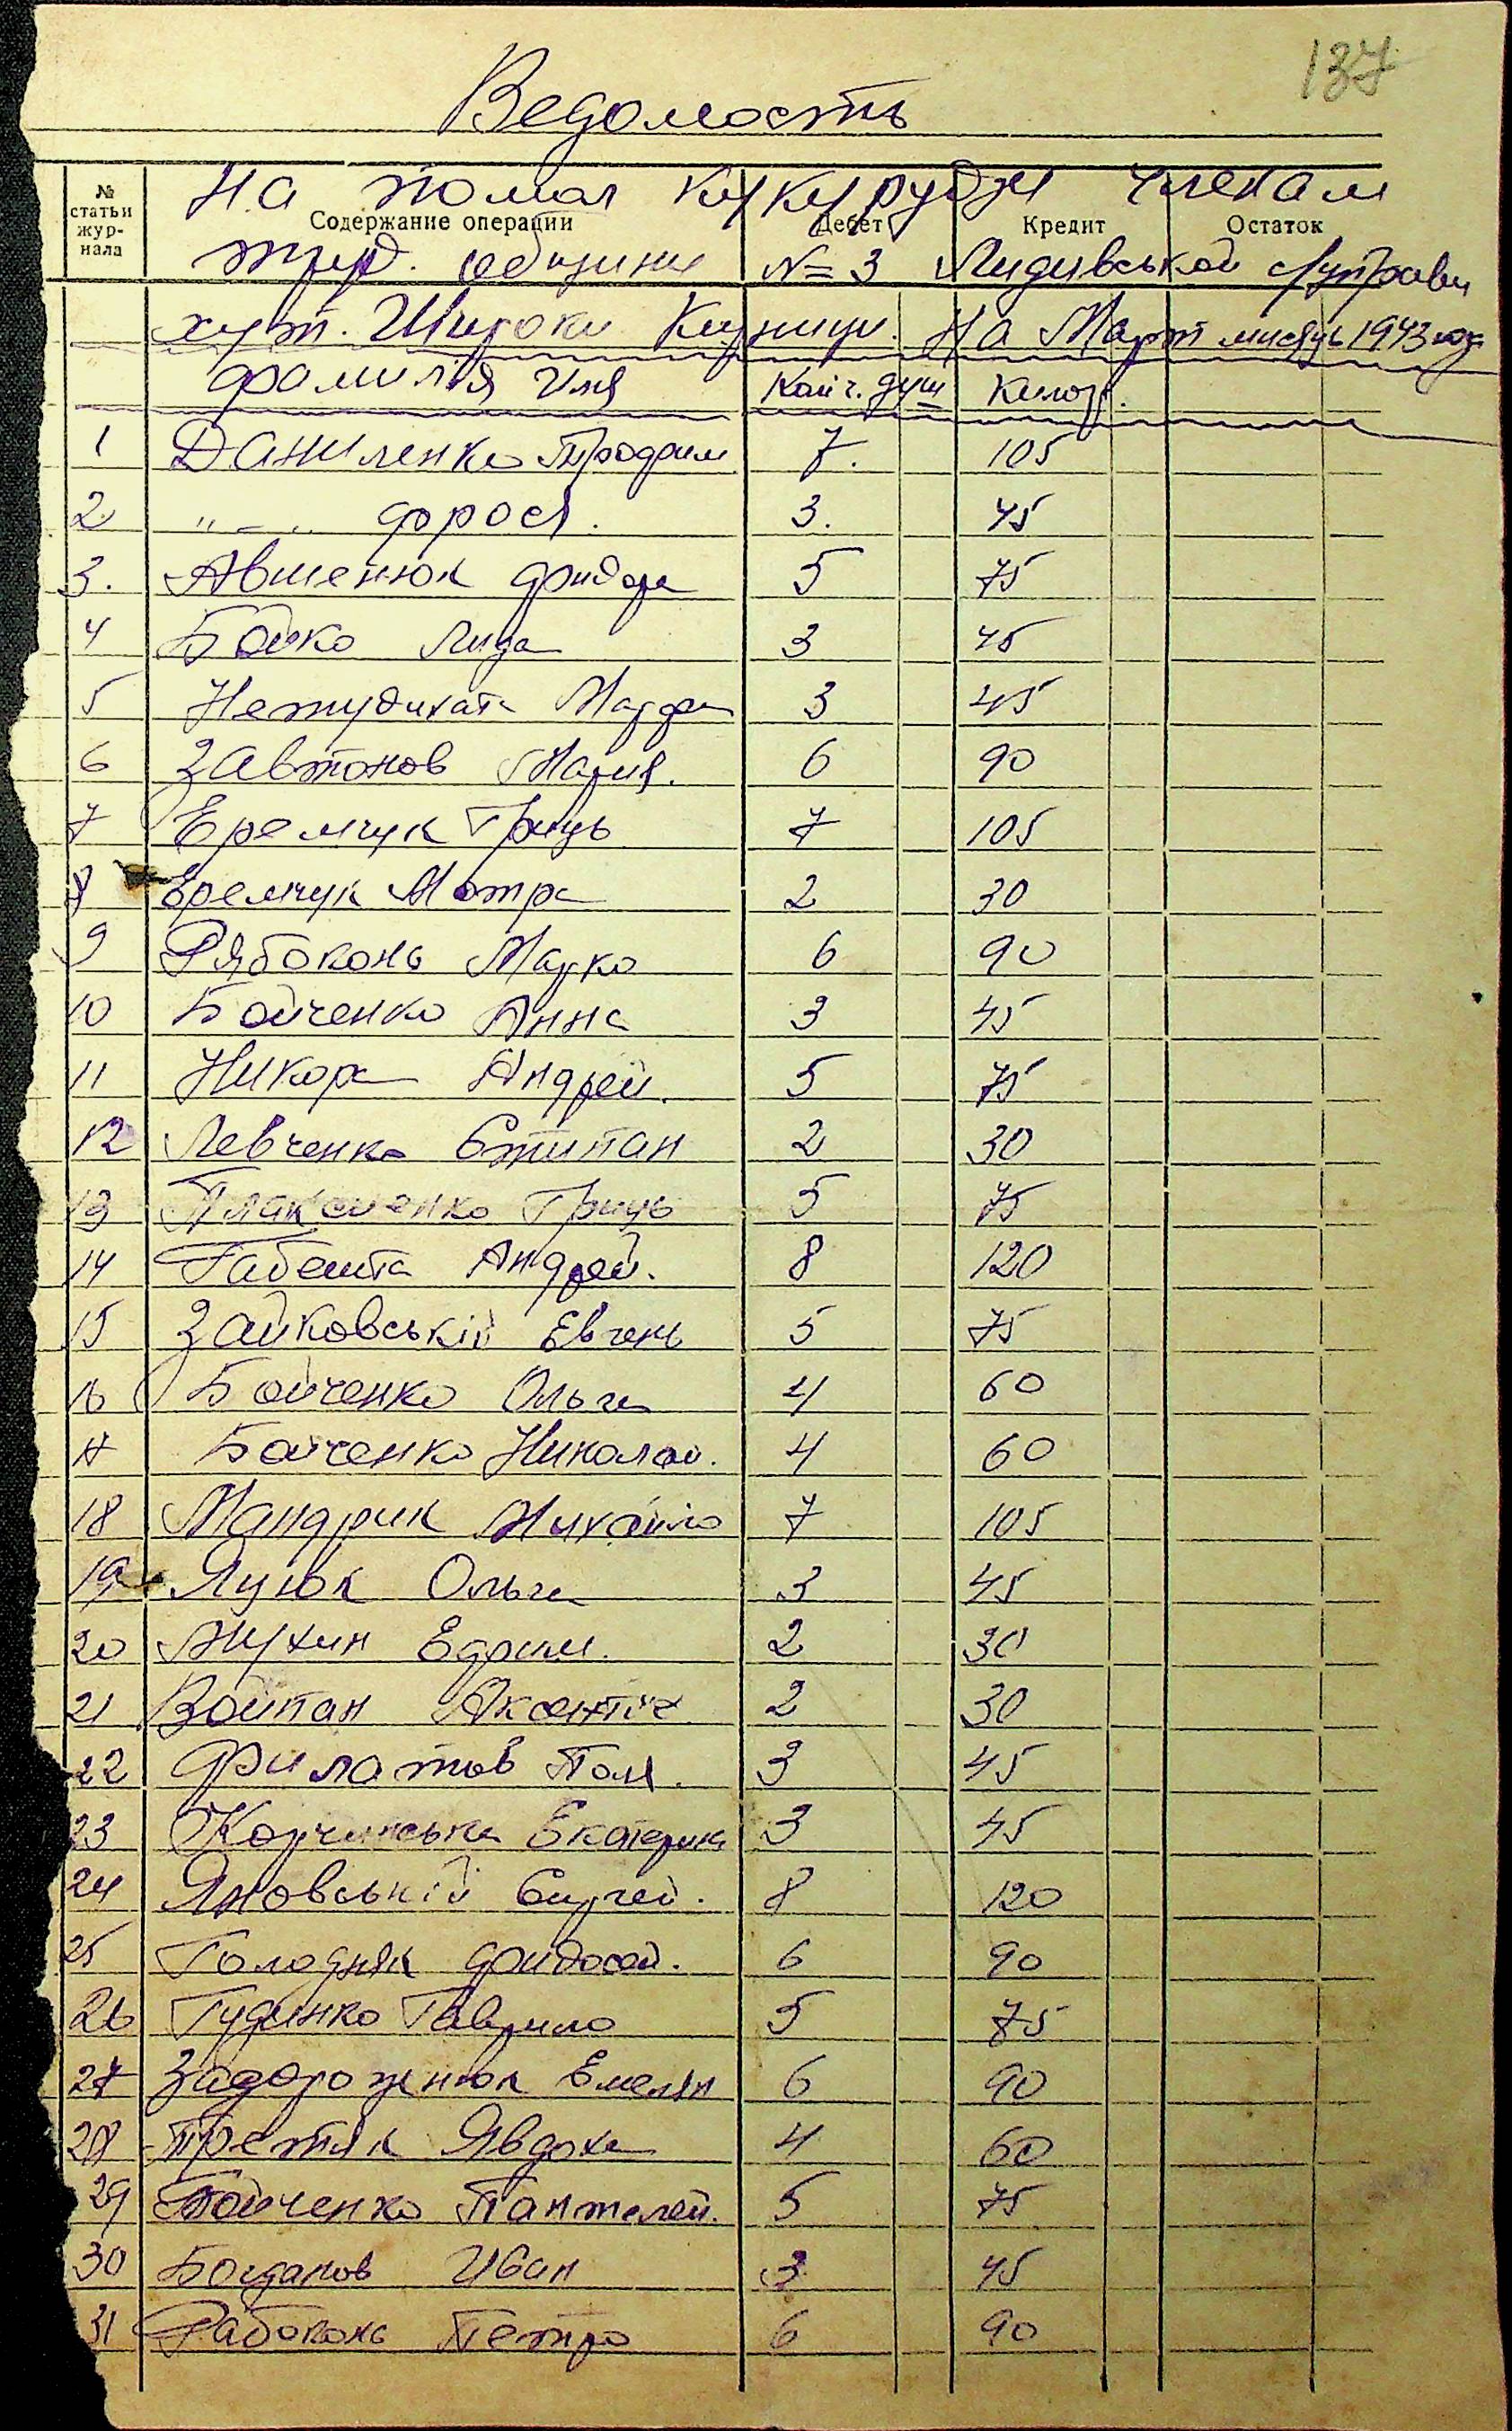 137
Ведомость
На помол кукурудзи членам
№ статьи журнала Содержание операции Дебет Кредит Остаток
труд. общини № 3 Лидивськой
хут. Широки Кирници. На Март мисяць 1943 года
фамилія Имя Кол ч. душ Килогр.
1 Даниленко Трофим 7. 105
2 "–" фрося. 3. 45
3. Авшенюк 5 75
4 Бойко Лида 3 45
5 Непудихата Марфа 3 45
6 Завтонов Мария. 6 90
7 Еремчук Гриць 7 105
8 Еремчук Мотра 2 30
9 Рябоконь Марко 6 90
10 Бойченко Анна 3 45
11 Никора Андрей. 5 75
12 Левченко Стипан 2 30
13 Плаксиенко Гриць 5 75
14 Андрей. 8 120
15 Зайковській Евгень 5 75
16 Бойченко Ольга 4 60
17 Бойченко Николай. 4 60
18 Мандрик Михайло 7 105
19 Яцюк Ольга 3 45
20 Мухин Ефрим. 2 30
21 Войтан 2 30
22 Филатов Поля. 3 45
23 Корчинська Екатерина 3 45
24 Яновській Сиргей. 8 120
25 Голодняк фидосей. 6 90
26 Гудинко Гаврило 5 75
27 Задорожнюк Емелян 6 90
28 Претяк Явдоха 4 60
29 Бойченко Пантелей. 5 75
30 Богданов Иван 3 45
31 Рабоконь Петро 6 90